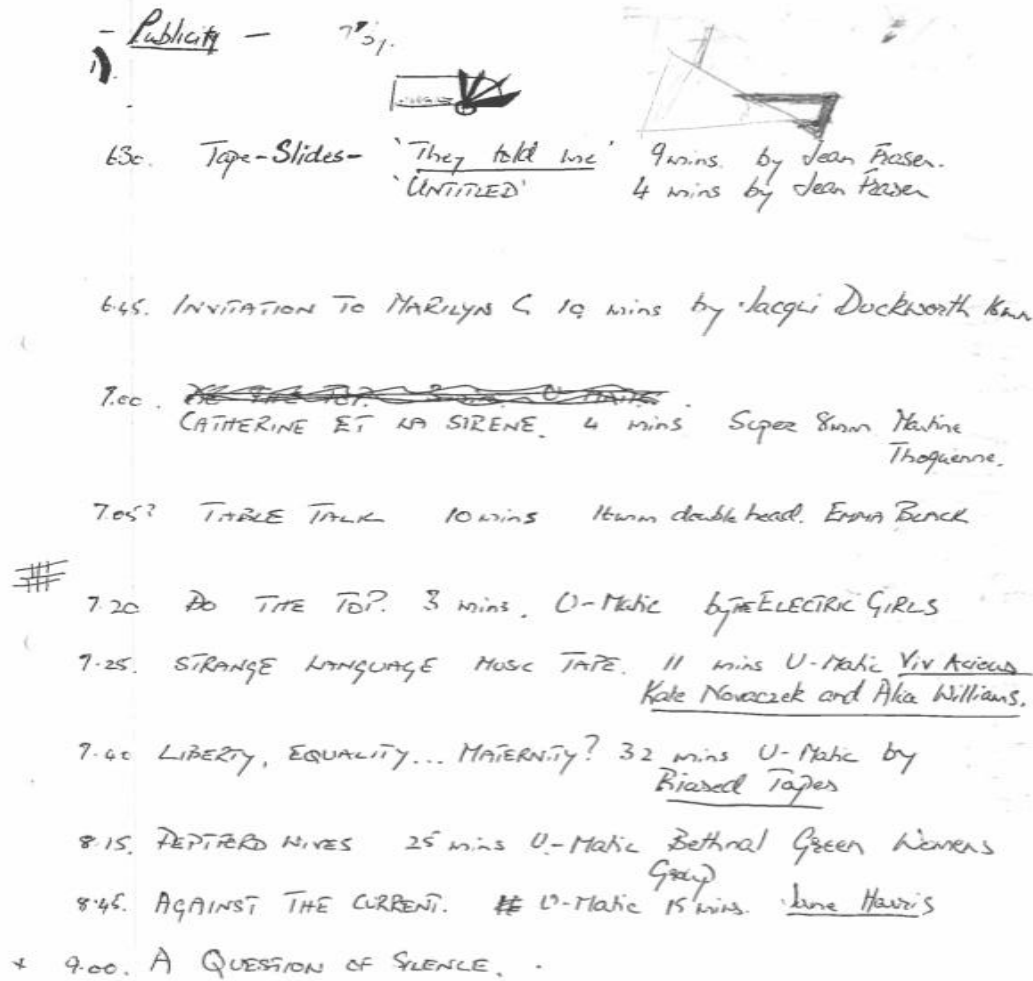 - Publicity -
1).
6.30. Tape-Slides- 'They told me' 9 mins. by Jean Fraser.
'UNTITLED' 4 mins by Jean Fraser
6.45. INVITATION TO MARILYN C 10 mins by Jacqui Duckworth 16mm
7.00.
CATHERINE ET LA SIRENE. 4 mins Super 8mm Martine
Thoquenne.
7.05? TABLE TALK 10 mins 16mm double head. EMMA BLACK
7.20 DO THE TOP. 3 mins. U-Matic by THE ELECTRIC GIRLS
7.25. STRANGE LANGUAGE MUSIC TAPE. 11 mins U-Matic Viv Acious
Kate Novaczek and Alia Williams.
7.40 LIBERTY, EQUALITY... MATERNITY? 32 mins U-Matic by
Biased Tapes
8.15. DEPTFORD WIVES 25 mins U-Matic Bethnal Green Womens
Group
8.45. AGAINST THE CURRENT. U-Matic 15 mins. June Harris
* 9.00. A QUESTION OF SILENCE.